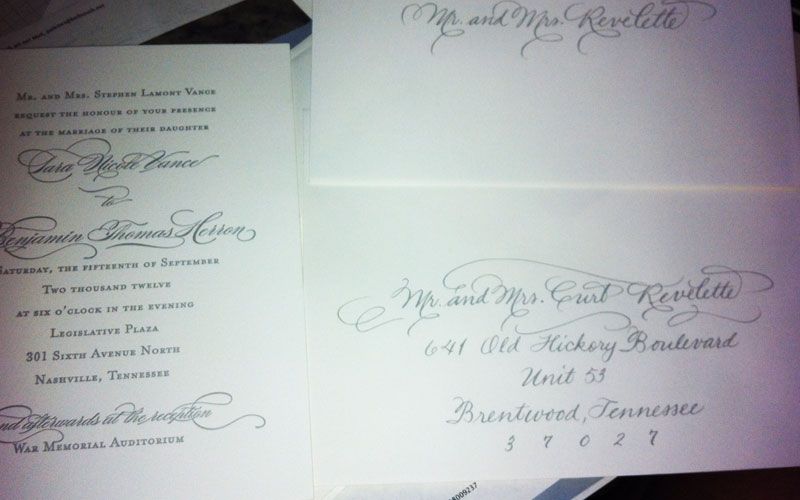 Mr. and Mrs. Stephen Lamont Vance
request the honour of your presence
at the marriage of their daughter
Sara Nicole Vance
to
Benjamin Thomas Herron
Saturday, the fifteenth of September
Two thousand twelve
at six o'clock in the evening
Legislative Plaza
301 Sixth Avenue North
Nashville, Tennessee
and afterwards at the reception
War Memorial Auditorium
Mr. and Mrs. Revelette
Mr. and Mrs. Curt Revelette
641 Old Hickory Boulevard
Unit 53
Brentwood, Tennessee
3 7 0 2 7
8009237